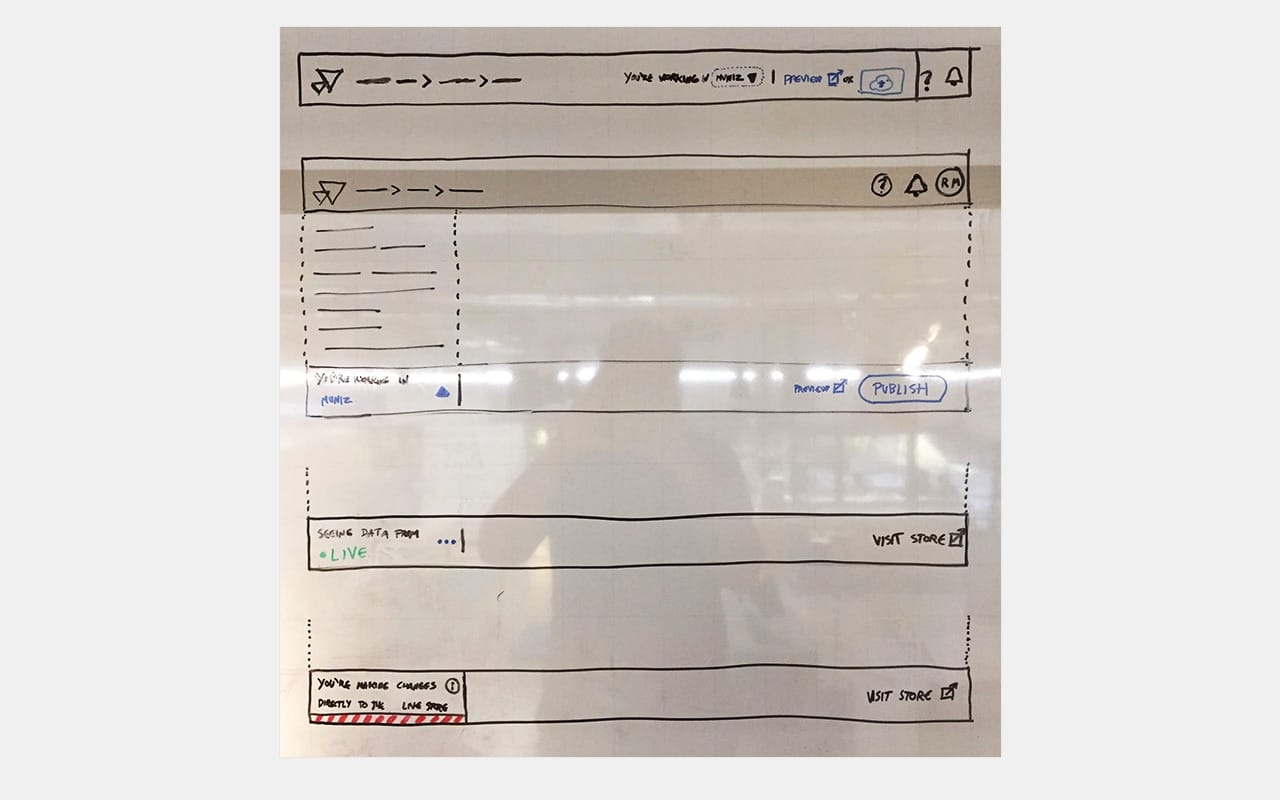 YOU'RE WORKING IN MUNIZ | PREVIEW OR ?
? RM
YOU'RE WORKING IN
MUNIZ
PREVIEW PUBLISH
SEEING DATA FROM
• LIVE ••• VISIT STORE
YOU'RE MAKING CHANGES i
DIRECTLY TO THE LIVE STORE
VISIT STORE